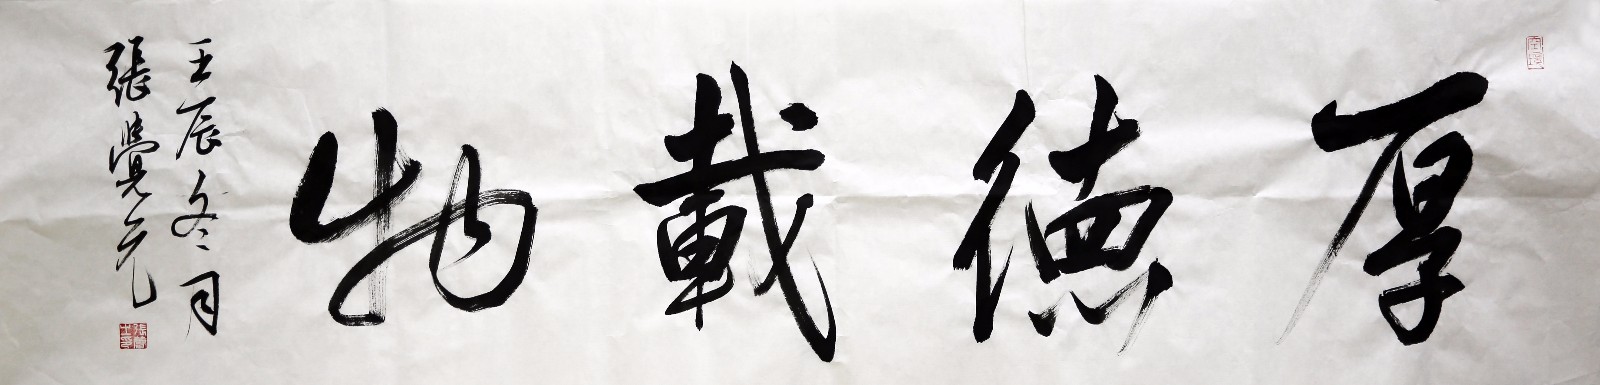 厚德載物
壬辰冬月
張覺元